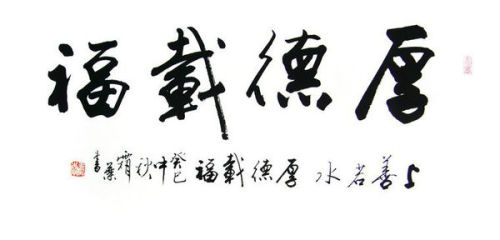 厚德載福
上善若水 厚德載福 癸巳中秋